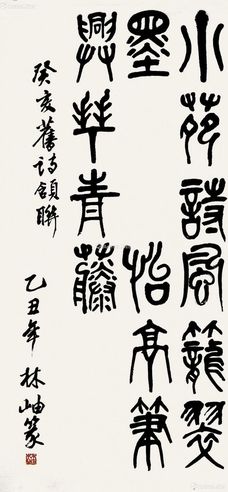 小苑詩風籠翠
墨怡亭筆
興青藤
癸亥舊詩頷聯
乙丑年林岫篆